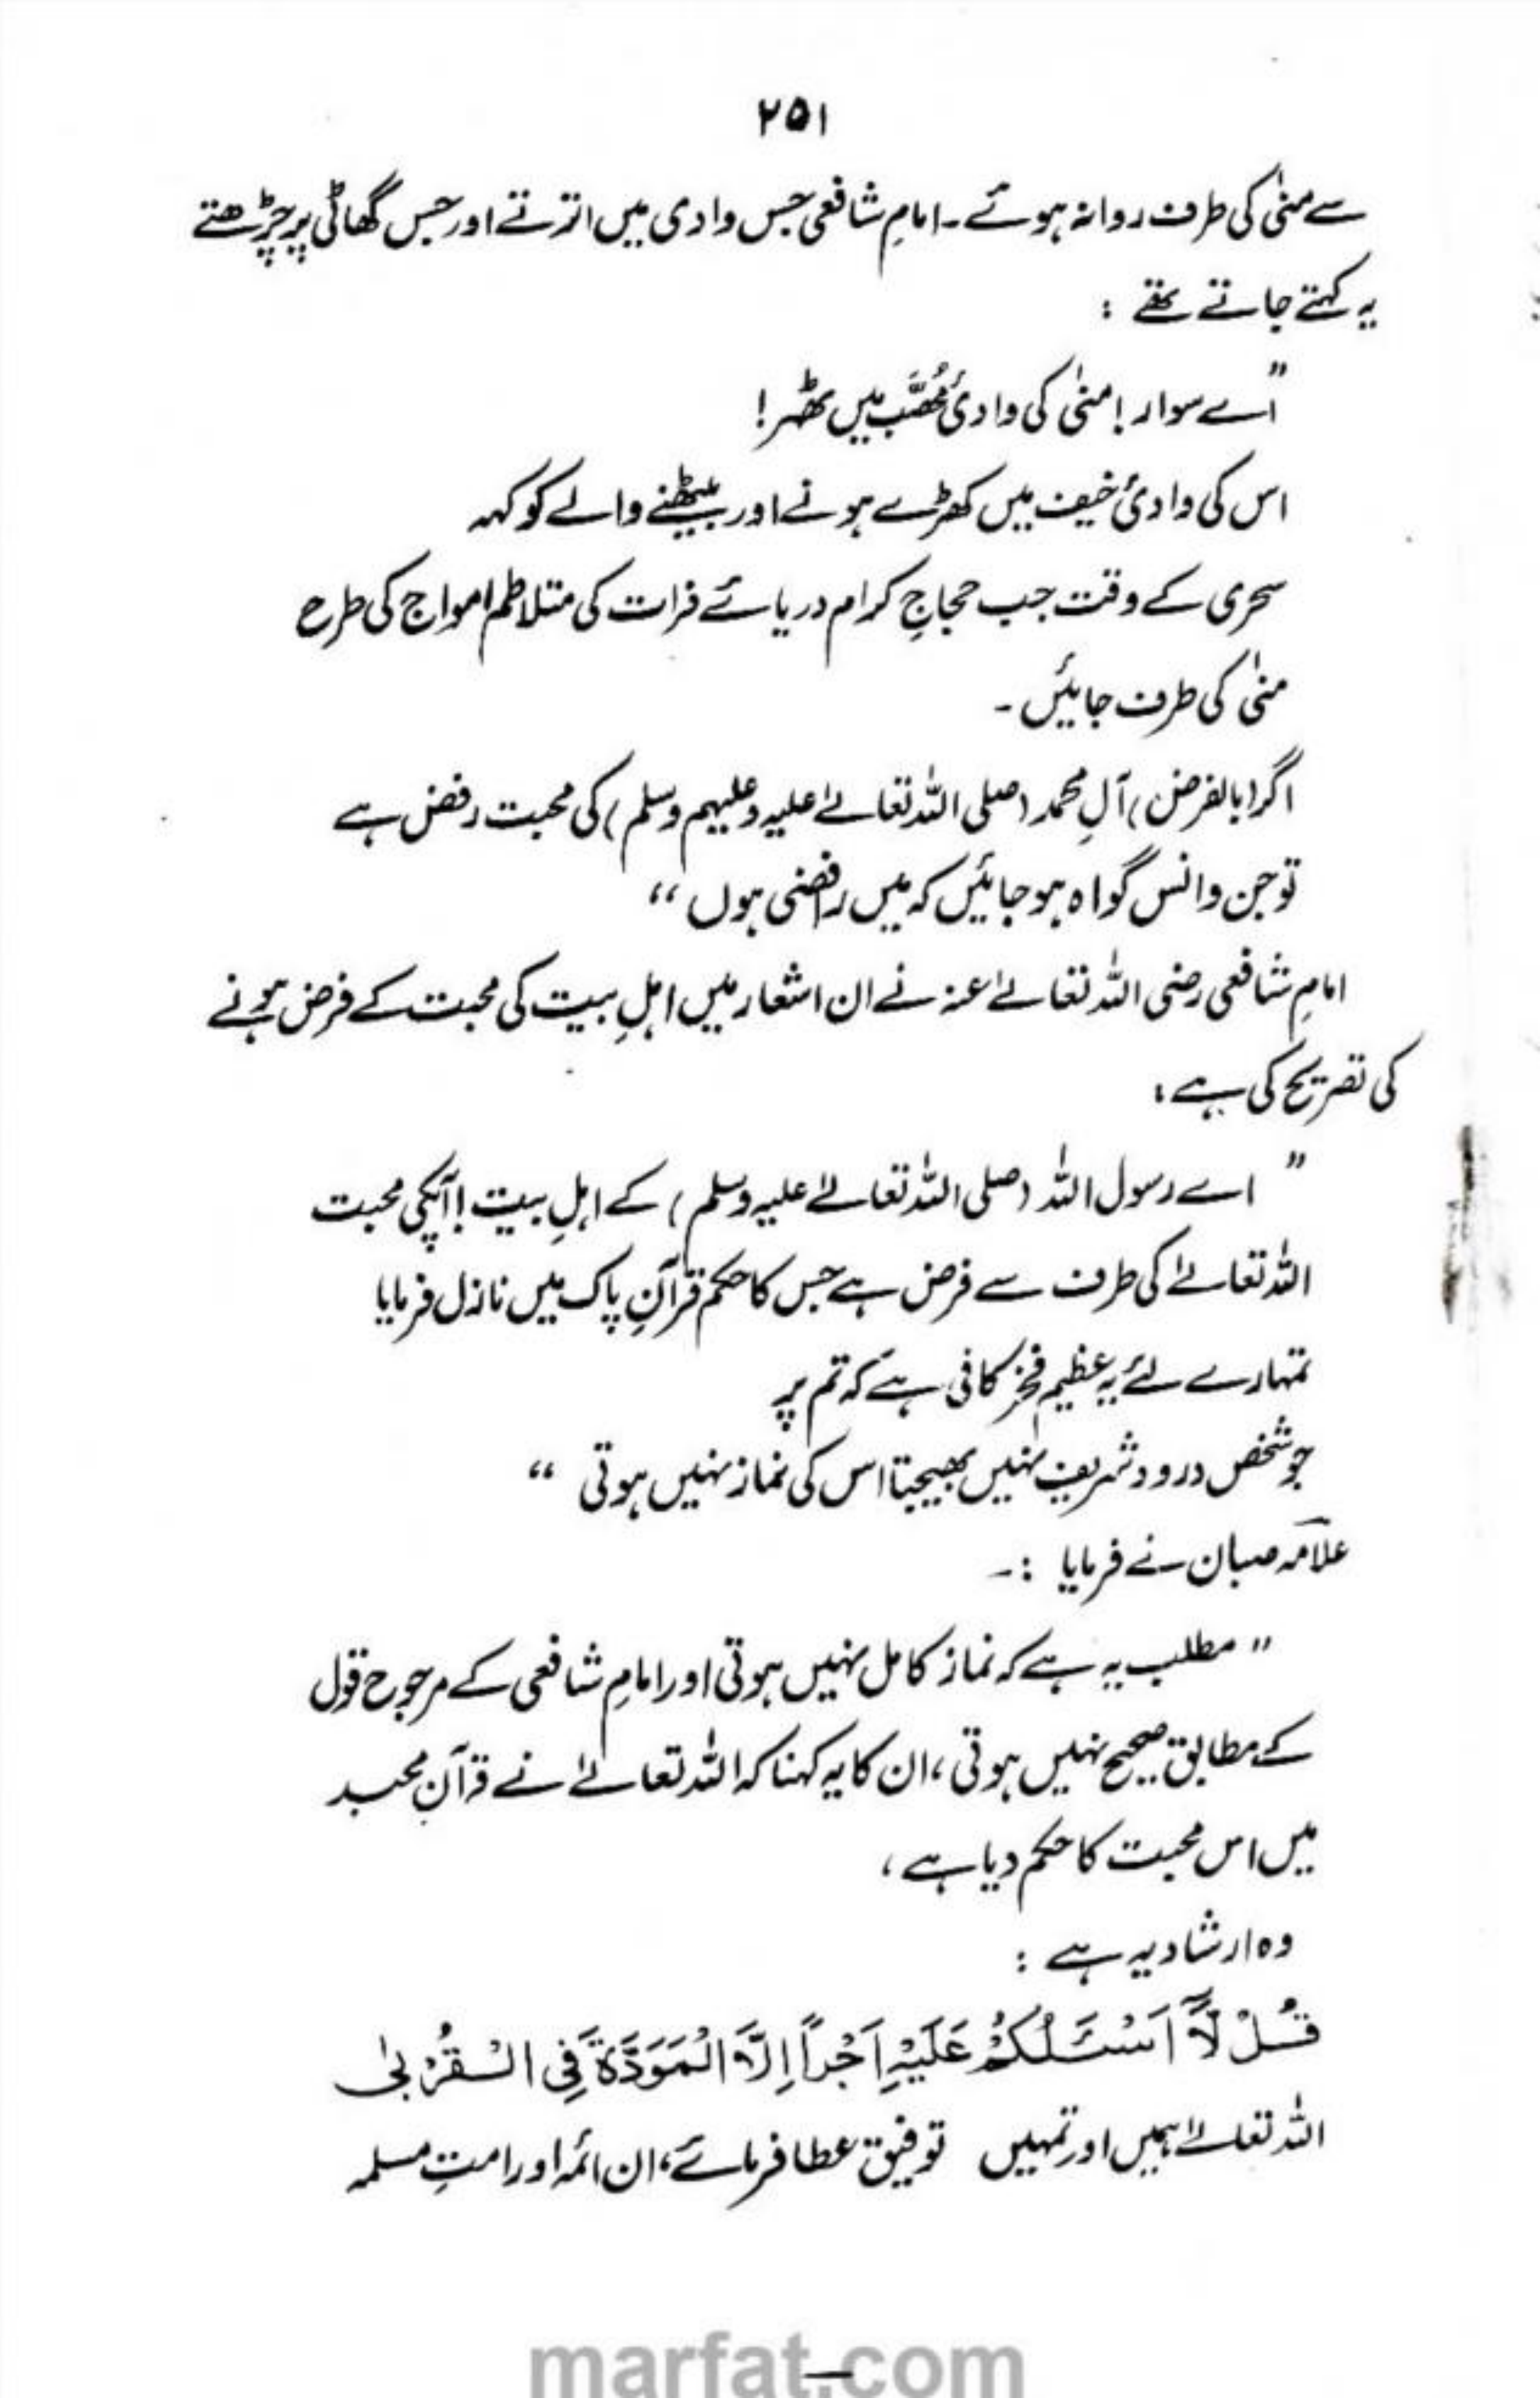 ۲۵۱
سے منیٰ کی طرف روانہ ہوئے۔ امامِ شافعی جس وادی میں اترتے اور جس گھاٹی پر چڑھتے
یہ کہتے جاتے تھے :
” اے سوار! منیٰ کی وادیٔ مُحَصَّب میں ٹھہر!
اس کی وادیٔ خیف میں کھڑے ہونے اور بیٹھنے والے کو کہہ
سحری کے وقت جب حجاجِ کرام دریائے فرات کی متلاطم امواج کی طرح
منیٰ کی طرف جائیں ۔
اگر (بالفرض) آلِ محمد (صلی اللہ تعالےٰ علیہ وعلیہم وسلم) کی محبت رفض ہے
تو جن و انس گواہ ہو جائیں کہ میں رافضی ہوں “
امامِ شافعی رضی اللہ تعالےٰ عنہ نے ان اشعار میں اہلِ بیت کی محبت کے فرض ہونے
کی تصریح کی ہے :
” اے رسول اللہ (صلی اللہ تعالےٰ علیہ وسلم) کے اہلِ بیت! آپکی محبت
اللہ تعالےٰ کی طرف سے فرض ہے جس کا حکم قرآنِ پاک میں نازل فرمایا
تمہارے لئے یہ عظیم فخر کافی ہے کہ تم پر
جو شخص درود شریف نہیں بھیجتا اس کی نماز نہیں ہوتی “
علامہ صبان نے فرمایا :۔
” مطلب یہ ہے کہ نماز کامل نہیں ہوتی اور امامِ شافعی کے مرجوح قول
کے مطابق صحیح نہیں ہوتی، ان کا یہ کہنا کہ اللہ تعالےٰ نے قرآنِ مجید
میں اس محبت کا حکم دیا ہے ،
وہ ارشاد یہ ہے :
قُلْ لَّآ اَسْئَلُكُمْ عَلَيْهِ اَجْراً اِلَّا الْمَوَدَّةَ فِی الْقُرْبٰی
اللہ تعالےٰ ہمیں اور تمہیں توفیق عطا فرمائے، ان ائمہ اور امتِ مسلمہ
marfat.com